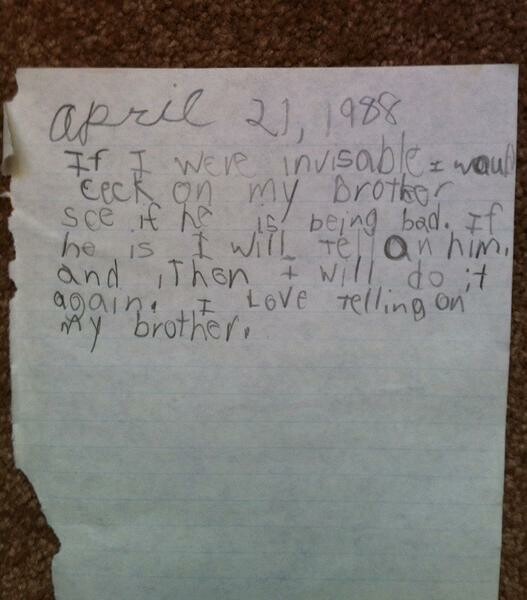 april 21, 1988
If I were invisable I woul
ceck on my brother
see if he is being bad. If
he is I will tell on him.
and ,Then I will do it
again. I Love telling on
My brother.